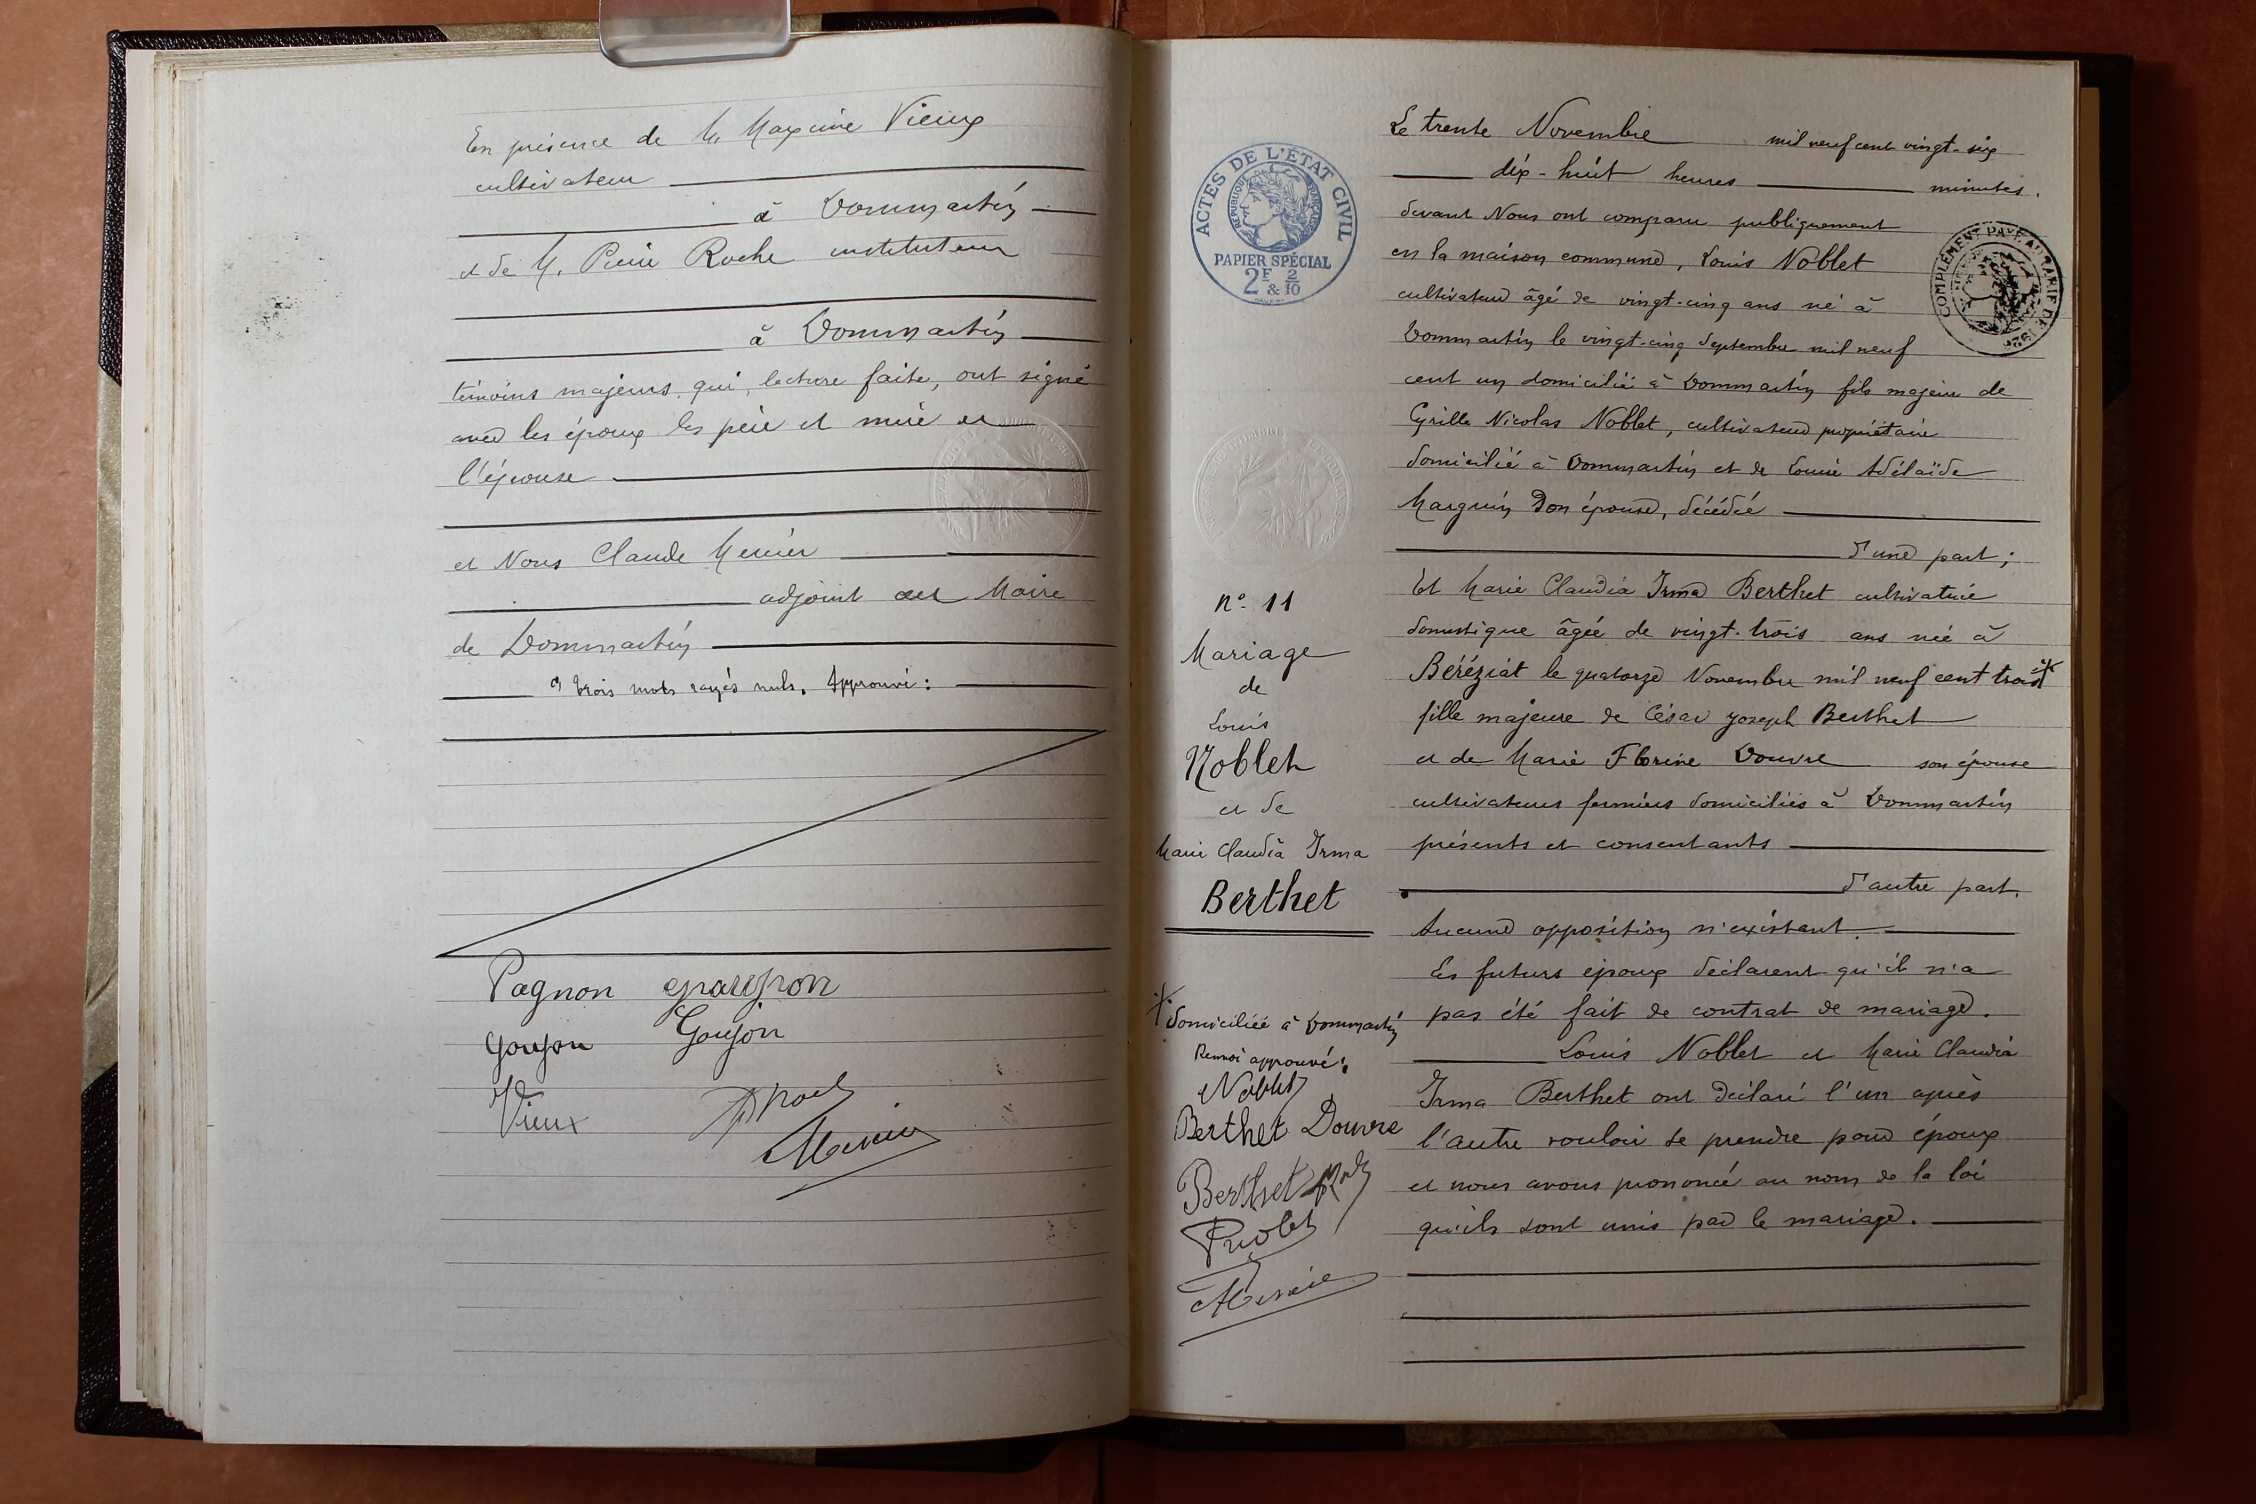 En présence de M. Maxime Vieux
cultivateur
à Dommartin
et de M. Pierre Roche instituteur
à Dommartin
témoins majeurs, qui, lecture faite, ont signé
avec les époux les père et mère de
l'épouse
et Nous Claude Mercier
adjoint au Maire
de Dommartin
trois mots rayés nuls. Approuvé :
Pagnon
Goujon Goujon
Vieux
Mercier
ACTES DE L'ÉTAT CIVIL
RÉPUBLIQUE FRANÇAISE
PAPIER SPÉCIAL
2F & 2/10
N° 11
Mariage
de
Louis
Noblet
et de
Marie Claudia Irma
Berthet
domiciliée à Dommartin
Renvoi approuvé :
Noblet
Berthet Douvre
Berthet
Mercier
Le trente Novembre mil neuf cent vingt-six
dix-huit heures minutes.
devant Nous ont comparu publiquement
en la maison commune, Louis Noblet
cultivateur âgé de vingt-cinq ans né à
Dommartin le vingt-cinq Septembre mil neuf
cent un domicilié à Dommartin fils majeur de
Cyrille Nicolas Noblet, cultivateur propriétaire
domicilié à Dommartin et de Louise Adélaïde
Marguin son épouse, décédée
d'une part ;
Et Marie Claudia Irma Berthet cultivatrice
domestique âgée de vingt-trois ans née à
Béréziat le quatorze Novembre mil neuf cent trois
fille majeure de César Joseph Berthet
et de Marie Florine Douvre son épouse
cultivateurs fermiers domiciliés à Dommartin
présents et consentants
d'autre part.
Aucune opposition n'existant.
Les futurs époux déclarent qu'il n'a
pas été fait de contrat de mariage.
Louis Noblet et Marie Claudia
Irma Berthet ont déclaré l'un après
l'autre vouloir se prendre pour époux
et nous avons prononcé au nom de la loi
qu'ils sont unis par le mariage.
COMPLÉMENT PAYÉ AU TARIF DE 1926